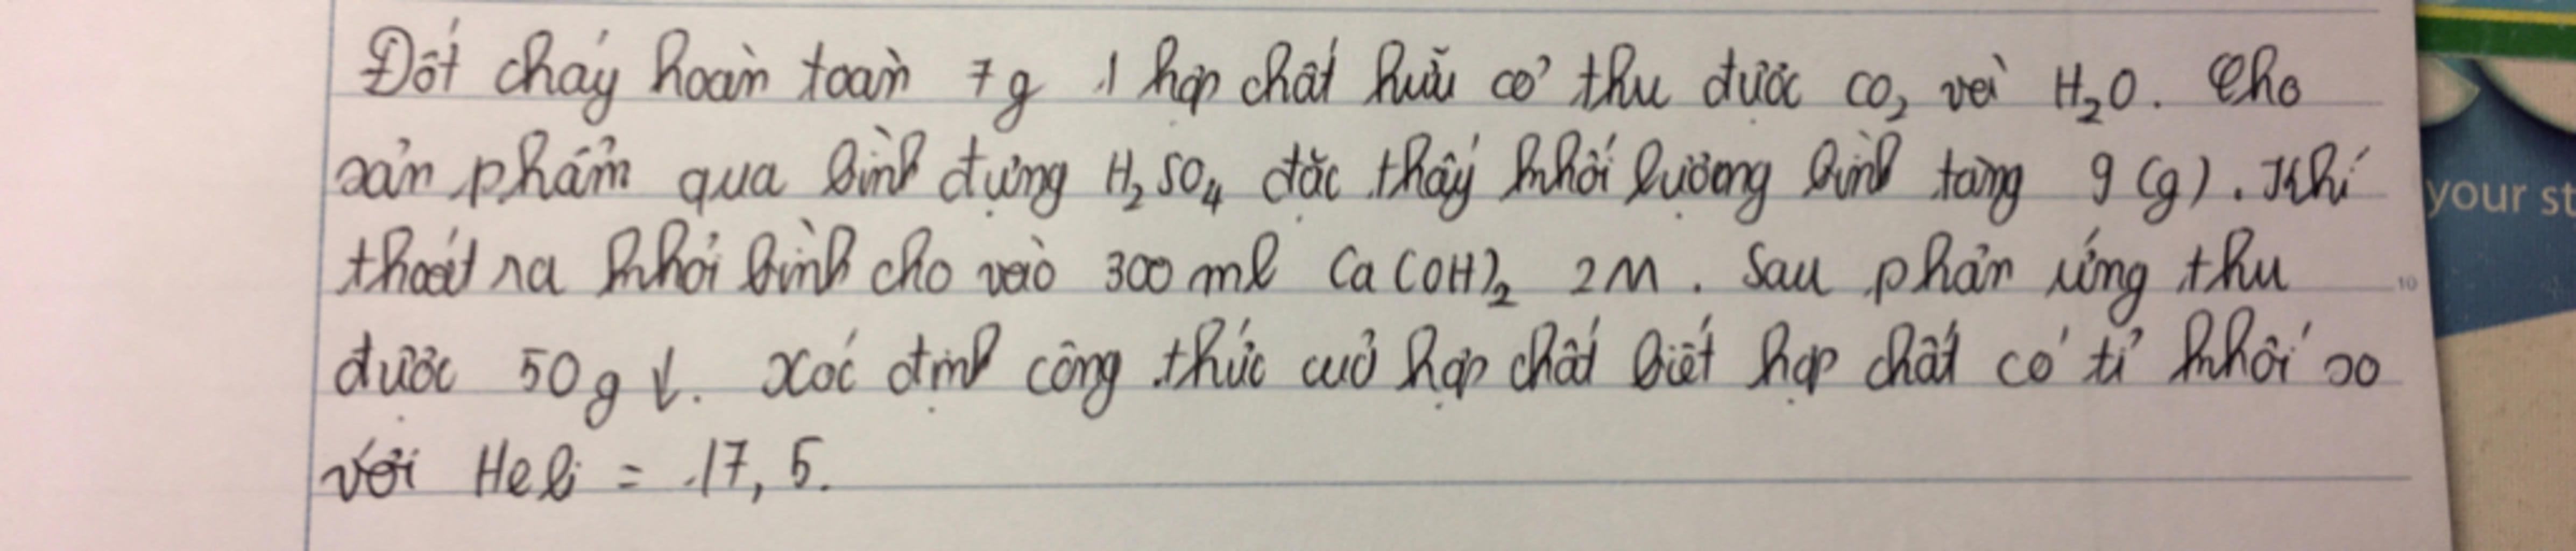 Đốt cháy hoàn toàn 7g 1 hợp chất hữu cơ thu được CO2 và H2O. Cho
sản phẩm qua bình đựng H2SO4 đặc thấy khối lượng bình tăng 9 (g). Khí
thoát ra khỏi bình cho vào 300 ml Ca(OH)2 2M. Sau phản ứng thu
được 50g ↓. Xác định công thức của hợp chất biết hợp chất có tỉ khối so
với Heli = 17,5.
your st
10